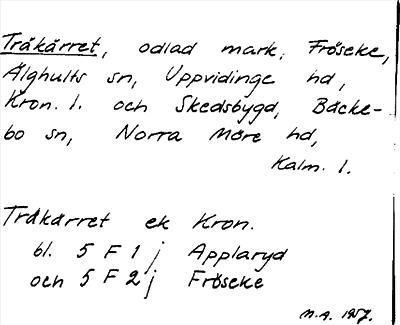 Tråkärret, odlad mark, Fröseke,
Älghults sn, Uppvidinge hd,
Kron. l. och Skedsbygd, Bäcke-
bo sn, Norra Möre hd,
Kalm. l.
Tråkärret ek Kron.
bl. 5 F 1 j Applaryd
och 5 F 2 j Fröseke
M.A. 1957.